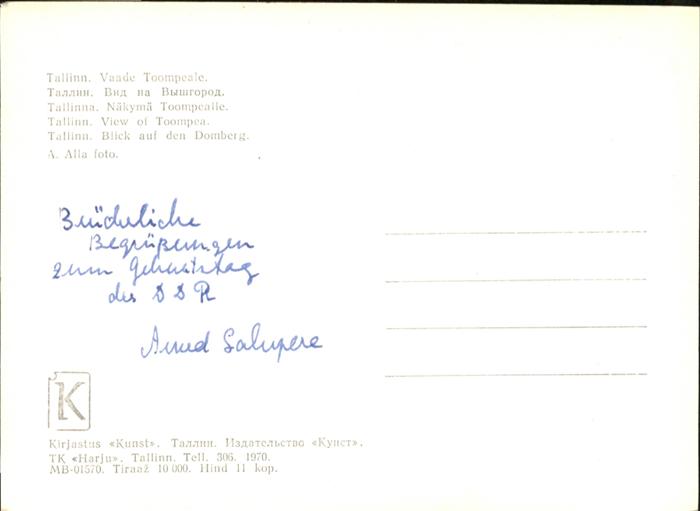 Tallinn. Vaade Toompeale.
Таллин. Вид на Вышгород.
Tallinna. Näkymä Toompealle.
Tallinn. View of Toompea.
Tallinn. Blick auf den Domberg.
A. Alla foto.
Brüderliche
Begrüßungen
zum Geburtstag
der DDR
Salupere
K
Kirjastus «Kunst». Таллин. Издательство «Кунст».
TK «Harju». Tallinn. Tell. 306. 1970.
MB-01570. Tiraaž 10 000. Hind 11 kop.